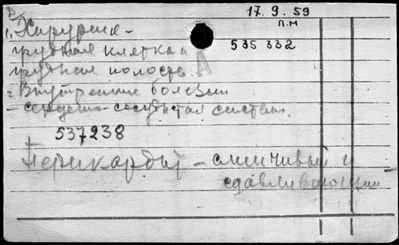 В
17.9.59
п.м
1. Хирургия -
535 332
грудная клетка и
грудная полость. А
2. Внутренние болезни
- сердечно-сосудистая система.
537238
Перикардит - слипчивый и
сдавливающий -